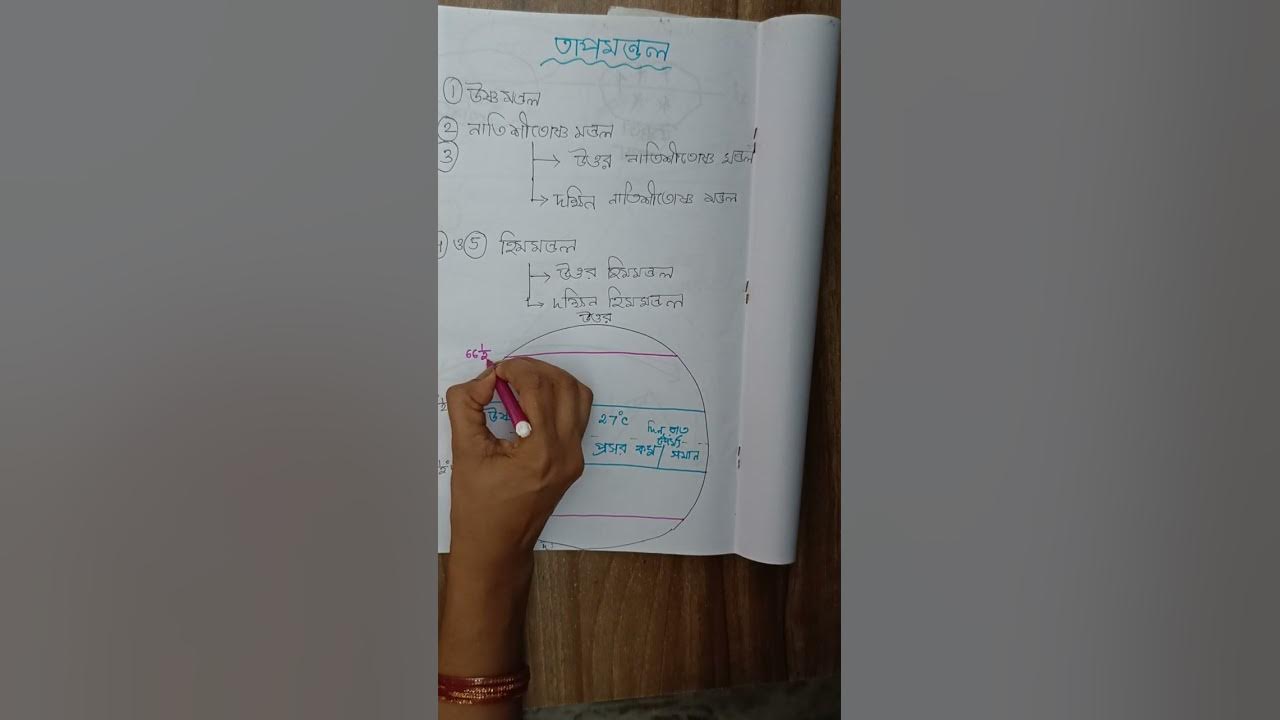 তাপমন্ডল
① উষ্ণ মন্ডল
② নাতিশীতোষ্ণ মন্ডল
③ → উত্তর নাতিশীতোষ্ণ মন্ডল
→ দক্ষিন নাতিশীতোষ্ণ মন্ডল
ও ⑤ হিমমন্ডল
→ উত্তর হিমমন্ডল
→ দক্ষিন হিমমন্ডল
উত্তর
66 1/2
27°C দিন রাত
প্রসর কম / সমান